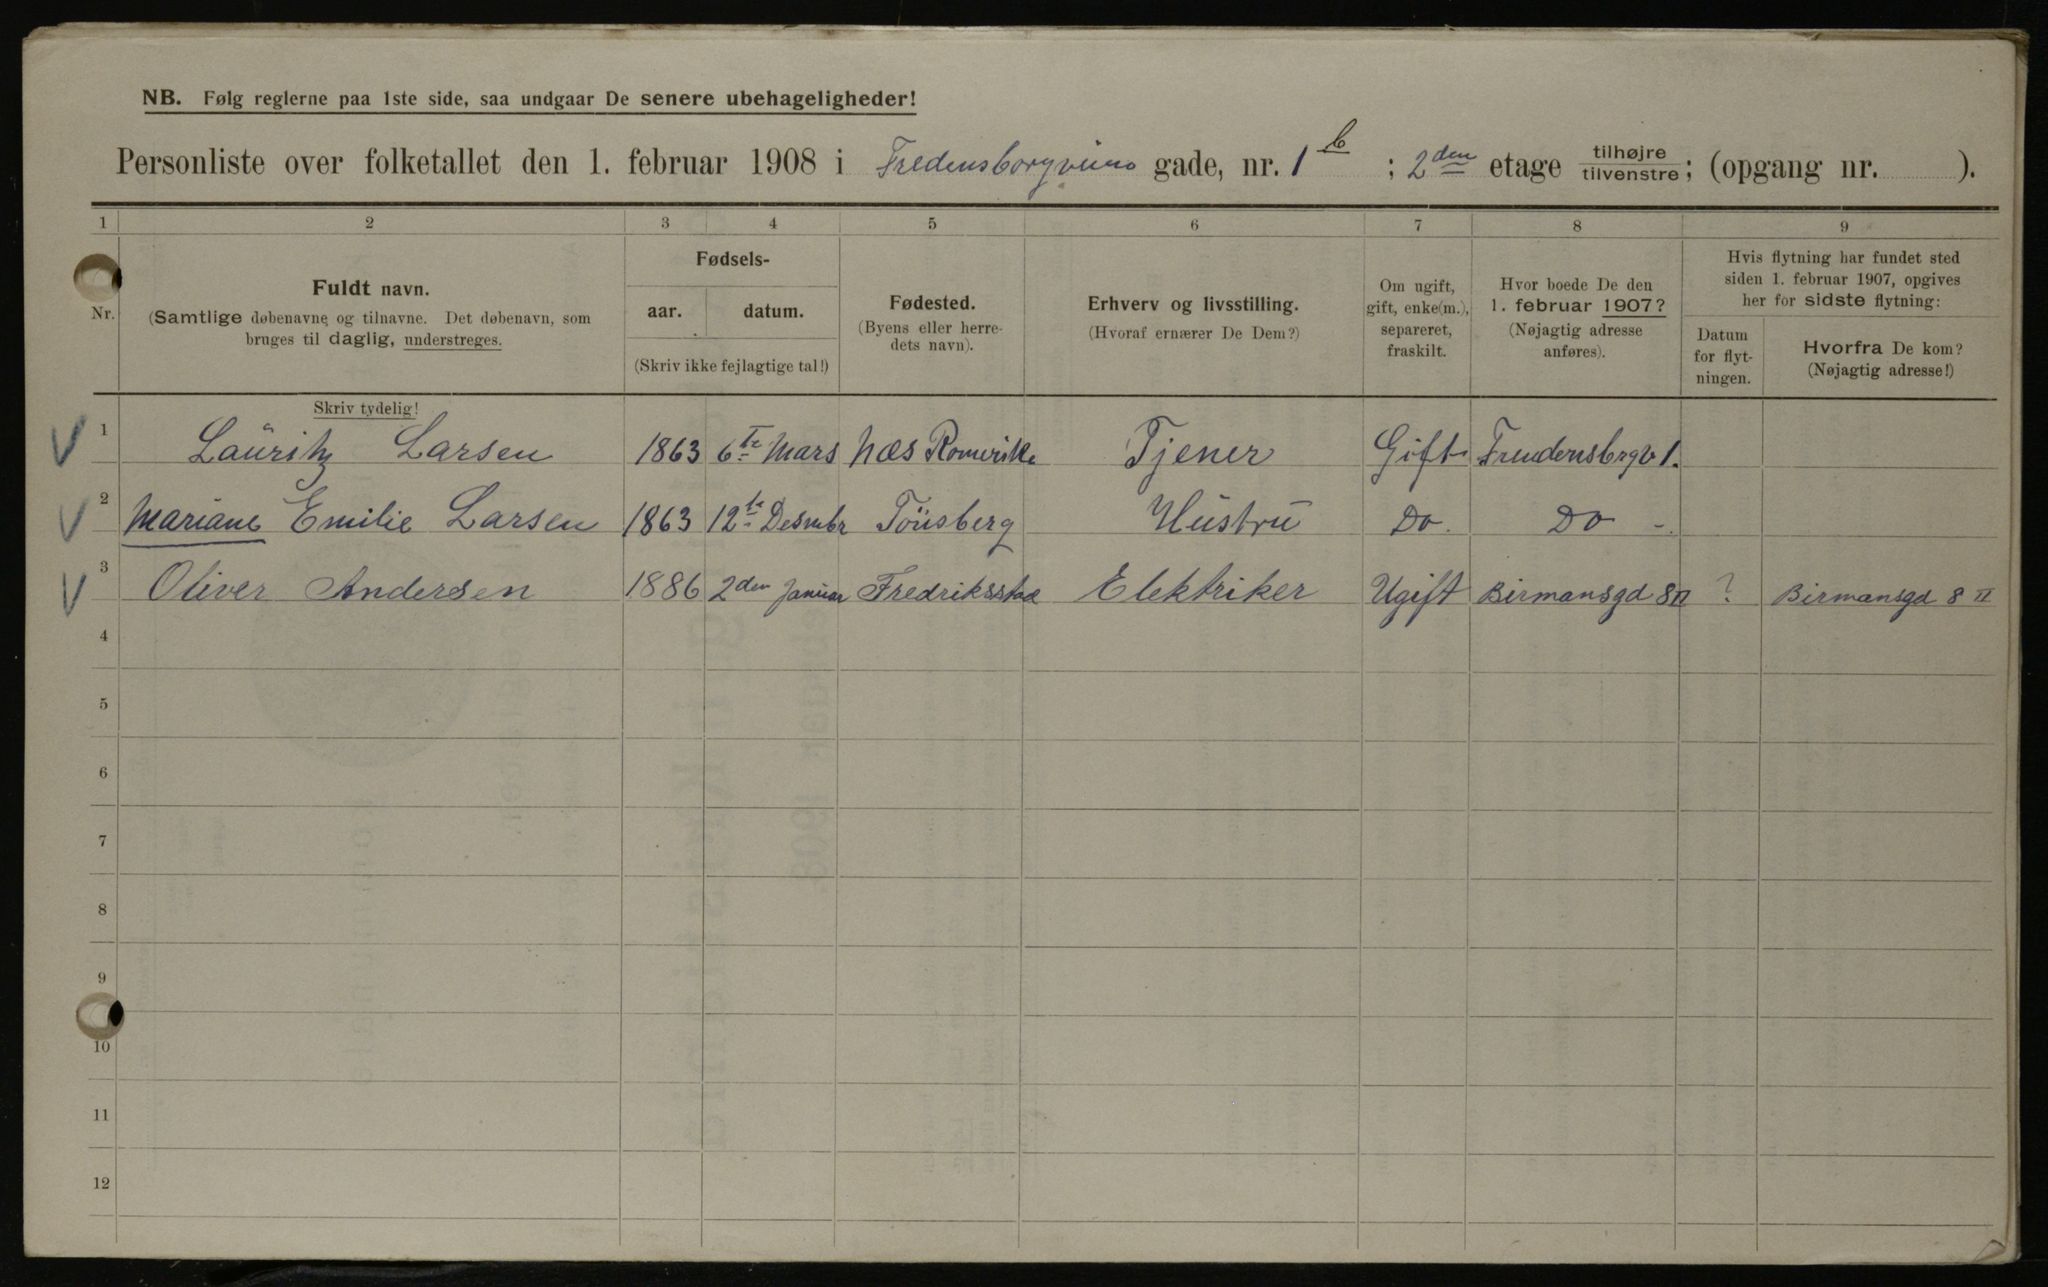 NB. Følg reglerne paa 1ste side, saa undgaar De senere ubehageligheder!
Personliste over folketallet den 1. februar 1908 i Fredensborgveien gade, nr. 1 b ; 2den etage tilhøjre tilvenstre; (opgang nr. ).
1 2 3 4 5 6 7 8 9
Nr. Fuldt navn. (Samtlige døbenavne og tilnavne. Det døbenavn, som bruges til daglig, understreges.
Fødsels- aar. datum. (Skriv ikke fejlagtige tal!)
Fødested. (Byens eller herredets navn).
Erhverv og livsstilling. (Hvoraf ernærer De Dem?)
Om ugift, gift, enke(m.), separeret, fraskilt.
Hvor boede De den 1. februar 1907? (Nøjagtig adresse anføres).
Hvis flytning har fundet sted siden 1. februar 1907, opgives her for sidste flytning:
Datum for flytningen.
Hvorfra De kom? (Nøjagtig adresse!)
Skriv tydelig!
1 Lauritz Larsen 1863 6te Mars Næs Romerike Tjener Gift Freudensbrgv 1.
2 Mariane Emilie Larsen 1863 12te Desmbr Tönsberg Hustru Do. Do -.
3 Oliver Andersen 1886 2den Januar Fredriksstad Elektriker Ugift Birmansgd 8 II ? Birmansgd 8 II
4
5
6
7
8
9
10
11
12